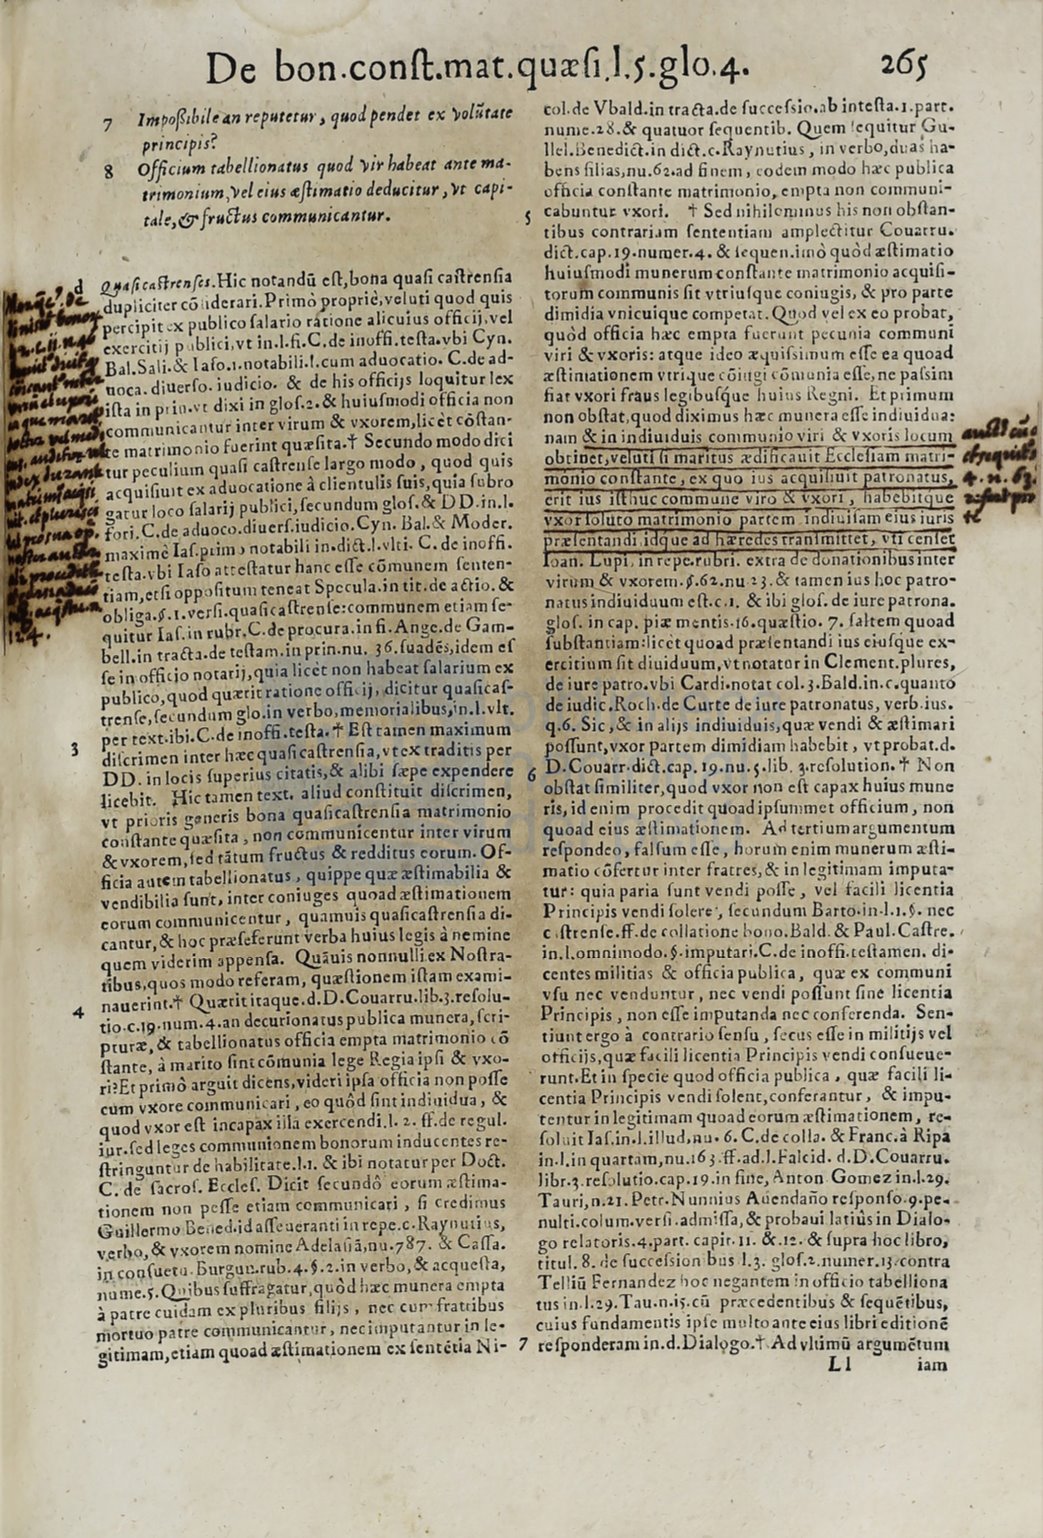 De bon.conſt.mat.quæſi.l.5.glo.4. 265
7 Impoſsibile an reputetur, quod pendet ex volũtate
principis?
8 Officium tabellionatus quod vir habeat ante ma-
trimonium, vel eius æſtimatio deducitur, vt capi-
tale, & fructus communicantur.
d Quaſi caſtrenſes. Hic notandũ eſt, bona quaſi caſtrenſia
dupliciter cõſiderari. Primò propriè, veluti quod quis
percipit ex publico ſalario ratione alicuius officij, vel
exercitij publici, vt in.l.fi.C.de inoffi.teſta.vbi Cyn.
Bal.Sali.& Iaſo.1.notabili.l.cum aduocatio. C.de ad-
uoca.diuerſo.iudicio. & de his officijs loquitur lex
iſta in prin.vt dixi in gloſ.2.& huiuſmodi officia non
communicantur inter virum & vxorem, licèt cõſtan-
te matrimonio fuerint quæſita.† Secundo modo dici
tur peculium quaſi caſtrenſe largo modo, quod quis
acquiſiuit ex aduocatione à clientulis ſuis, quia ſubro
gatur loco ſalarij publici, ſecundum gloſ.& DD.in.l.
fori.C.de aduoco.diuerſ.iudicio.Cyn. Bal.& Moder.
maximè Iaſ.primo notabili in.dict.l.vlti. C.de inoffi.
teſta.vbi Iaſo atteſtatur hanc eſſe cõmunem ſenten-
tiam, etſi oppoſitum teneat Specula.in tit.de actio.&
obliga.§.1.verſi.quaſi caſtrenſe: communem etiam ſe-
quitur Iaſ.in rubr.C.de procura.in fi. Ange.de Gam-
bell.in tracta.de teſtam.in prin.nu. 36.ſuadẽs, idem eſ
ſe in officio notarij, quia licèt non habeat ſalarium ex
publico, quod quærit ratione officij, dicitur quaſicaſ-
trenſe, ſecundum glo.in verbo, memorialibus, in.l.vlt.
3 per text.ibi.C.de inoffi.teſta.† Eſt tamen maximum
diſcrimen inter hæc quaſi caſtrenſia, vt ex traditis per
DD. in locis ſuperius citatis, & alibi ſæpe expendere
licebit. Hic tamen text. aliud conſtituit diſcrimen,
vt prioris generis bona quaſicaſtrenſia matrimonio
conſtante quæſita, non communicentur inter virum
& vxorem, ſed tãtum fructus & redditus eorum. Of-
ficia autem tabellionatus, quippe quæ æſtimabilia &
vendibilia ſunt, inter coniuges quoad æſtimationem
eorum communicentur, quamuis quaſicaſtrenſia di-
cantur, & hoc præſeferunt verba huius legis à nemine
quem viderim appenſa. Quãuis nonnulli ex Noſtra-
tibus, quos modo referam, quæſtionem iſtam exami-
4 nauerint.† Quærit itaque.d.D.Couarru.lib.3.reſolu-
tio.c.19.num.4.an decurionatus publica munera, ſcri-
pturæ, & tabellionatus officia empta matrimonio cõ
ſtante, à marito ſint cõmunia lege Regia ipſi & vxo-
ri? Et primò arguit dicens, videri ipſa officia non poſſe
cum vxore communicari, eo quòd ſint indiuidua, &
quod vxor eſt incapax illa exercendi.l. 2. ff.de regul.
iur.ſed leges communionem bonorum inducentes re-
ſtringuntur de habilitate.l.1. & ibi notatur per Doct.
C. de ſacroſ. Eccleſ. Dicit ſecundò eorum æſtima-
tionem non poſſe etiam communicari, ſi credimus
Guillermo Bened.id aſſeueranti in repe.c.Raynutius,
verbo, & vxorem nomine Adelaſiã, nu.787. & Caſſa.
in conſuetu. Burgun.rub.4.§.2.in verbo, & acqueſta,
nume.5.Quibus ſuffragatur, quòd hæc munera empta
à patre cuidam ex pluribus filijs, nec cum fratribus
mortuo patre communicantur, nec imputantur in le-
gitimam, etiam quoad æſtimationem ex ſentẽtia Ni-
col.de Vbald.in tracta.de ſucceſsio.ab inteſta.1.part.
nume.28.& quatuor ſequentib. Quem ſequitur Gu-
llel.Benedict.in dict.c.Raynutius, in verbo, duas ha-
bens filias, nu.62.ad finem, eodem modo hæc publica
officia conſtante matrimonio, empta non communi-
5 cabuntur vxori. † Sed nihilominus his non obſtan-
tibus contrariam ſententiam amplectitur Couarru.
dict.cap.19.numer.4. & ſequen.imò quòd æſtimatio
huiuſmodi munerum conſtante matrimonio acquiſi-
torum communis ſit vtriuſque coniugis, & pro parte
dimidia vnicuique competat. Quod vel ex eo probat,
quòd officia hæc empta fuerunt pecunia communi
viri & vxoris: atque ideo æquiſsimum eſſe ea quoad
æſtimationem vtrique cõiugi cõmunia eſſe, ne paſsim
fiat vxori fraus legibuſque huius Regni. Et primum
non obſtat, quod diximus hæc munera eſſe indiuidua:
nam & in indiuiduis communio viri & vxoris locum
obtinet, veluti ſi maritus ædificauit Eccleſiam matri-
monio conſtante, ex quo ius acquiſiuit patronatus,
erit ius iſthuc commune viro & vxori, habebitque
vxor ſoluto matrimonio partem indiuiſam eius iuris
præſentandi idque ad hæredes tranſmittet, vti cenſet
Ioan. Lupi, in repe.rubri. extra de donationibus inter
virum & vxorem.§.62.nu 23.& tamen ius hoc patro-
natus indiuiduum eſt.c.1. & ibi gloſ.de iure patrona.
gloſ. in cap. piæ mentis.16.quæſtio. 7. ſaltem quoad
ſubſtantiam: licèt quoad præſentandi ius eiuſque ex-
ercitium ſit diuiduum, vt notatur in Clement.plures,
de iure patro.vbi Cardi.notat col.3.Bald.in.c.quanto
de iudic.Roch.de Curte de iure patronatus, verb.ius.
q.6. Sic, & in alijs indiuiduis, quæ vendi & æſtimari
poſſunt, vxor partem dimidiam habebit, vt probat.d.
6 D.Couarr.dict.cap. 19.nu.5.lib. 3.reſolution.† Non
obſtat ſimiliter, quod vxor non eſt capax huius mune
ris, id enim procedit quoad ipſummet officium, non
quoad eius æſtimationem. Ad tertium argumentum
reſpondeo, falſum eſſe, horum enim munerum æſti-
matio cõfertur inter fratres, & in legitimam imputa-
tur: quia paria ſunt vendi poſſe, vel facili licentia
Principis vendi ſolere, ſecundum Barto.in.l.1.§. nec
caſtrenſe.ff.de collatione bono.Bald. & Paul.Caſtre.
in.l.omnimodo.§.imputari.C.de inoffi.teſtamen. di-
centes militias & officia publica, quæ ex communi
vſu nec venduntur, nec vendi poſſunt ſine licentia
Principis, non eſſe imputanda nec conferenda. Sen-
tiunt ergo à contrario ſenſu, ſecus eſſe in militijs vel
officijs, quæ facili licentia Principis vendi conſueue-
runt. Et in ſpecie quod officia publica, quæ facili li-
centia Principis vendi ſolent, conferantur, & impu-
tentur in legitimam quoad eorum æſtimationem, re-
ſoluit Iaſ.in.l.illud, nu. 6. C.de colla. & Franc.à Ripa
in.l.in quartam, nu.163 ff.ad.l.Falcid. d.D.Couarru.
libr.3.reſolutio.cap.19.in fine, Anton Gomez in.l.29.
Tauri, n.21. Petr.Nunnius Auendaño reſponſo.9.pe-
nulti.colum.verſi.admiſſa, & probaui latiùs in Dialo-
go relatoris.4.part. capit.11. &.12. & ſupra hoc libro,
titul. 8. de ſucceſsionibus l.3. gloſ.2.numer.13.contra
Telliũ Fernandez hoc negantem in officio tabelliona
tus in.l.29.Tau.n.15.cũ præcedentibus & ſequẽtibus,
cuius fundamentis ipſe multo ante eius libri editionẽ
7 reſponderam in.d.Dialogo.† Ad vltimũ argumẽtum
Ll iam